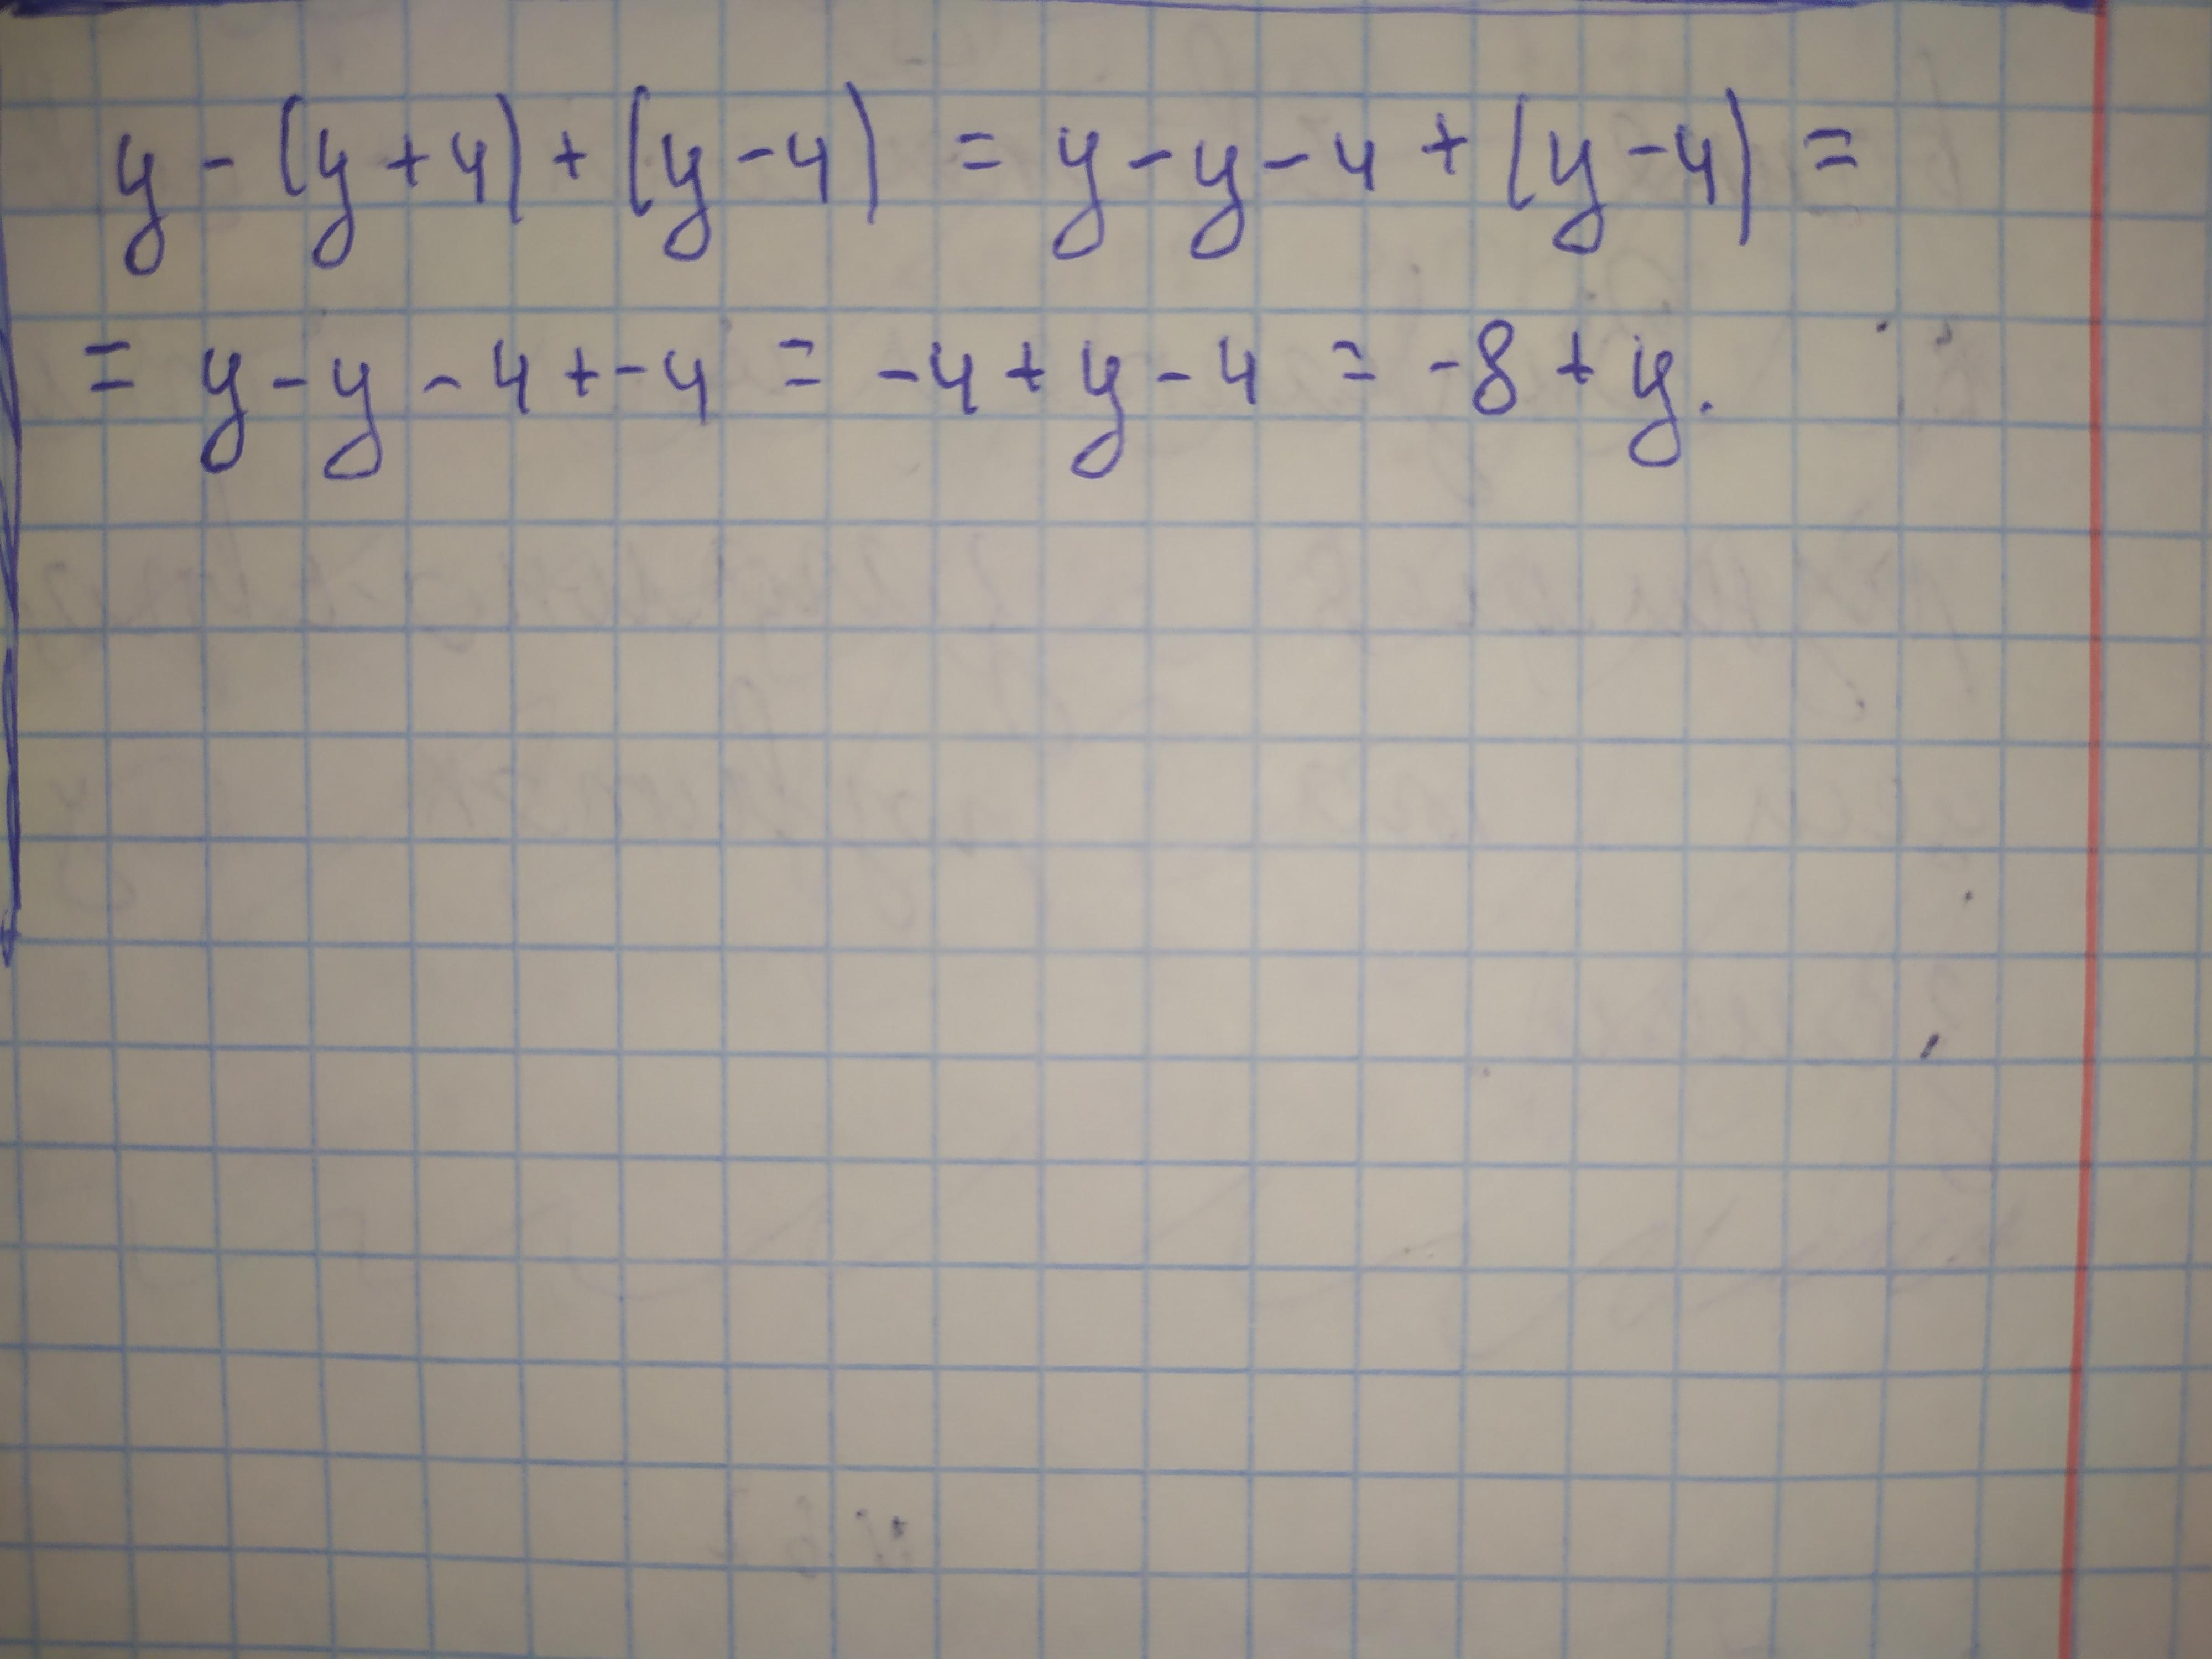 y - (y + 4) + (y - 4) = y - y - 4 + (y - 4) =
= y - y - 4 + - 4 = - 4 + y - 4 = - 8 + y.